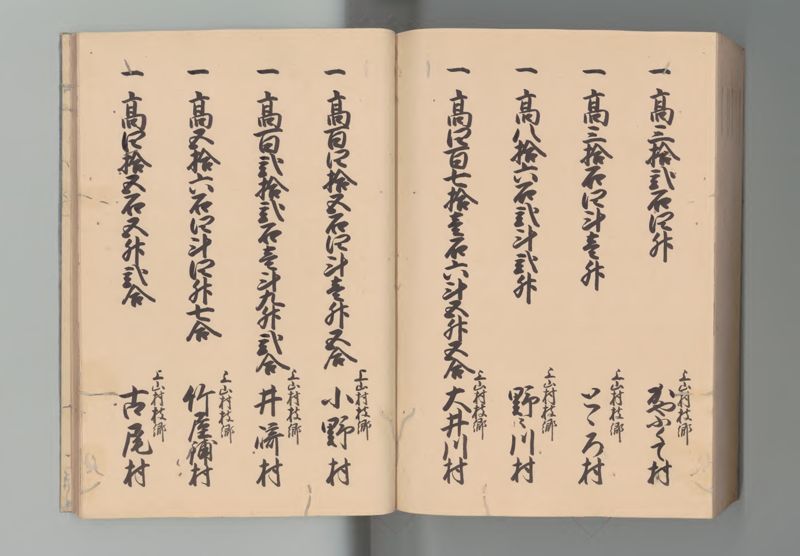 一 高三拾弐石四升
上山村枝郷
村
一 高三拾石四斗壱升
上山村枝郷
ところ村
一 高八拾六石弐斗弐升
上山村枝郷
野々川村
一 高四百七拾壱石六斗五升五合
上山村枝郷
大井川村
一 高百四拾五石四斗壱升五合
上山村枝郷
小野村
一 高百弐拾弐石壱斗九升弐合
上山村枝郷
井㟢村
一 高五拾六石四斗四升七合
上山村枝郷
竹屋鋪村
一 高四拾五石五升弐合
上山村枝郷
古尾村